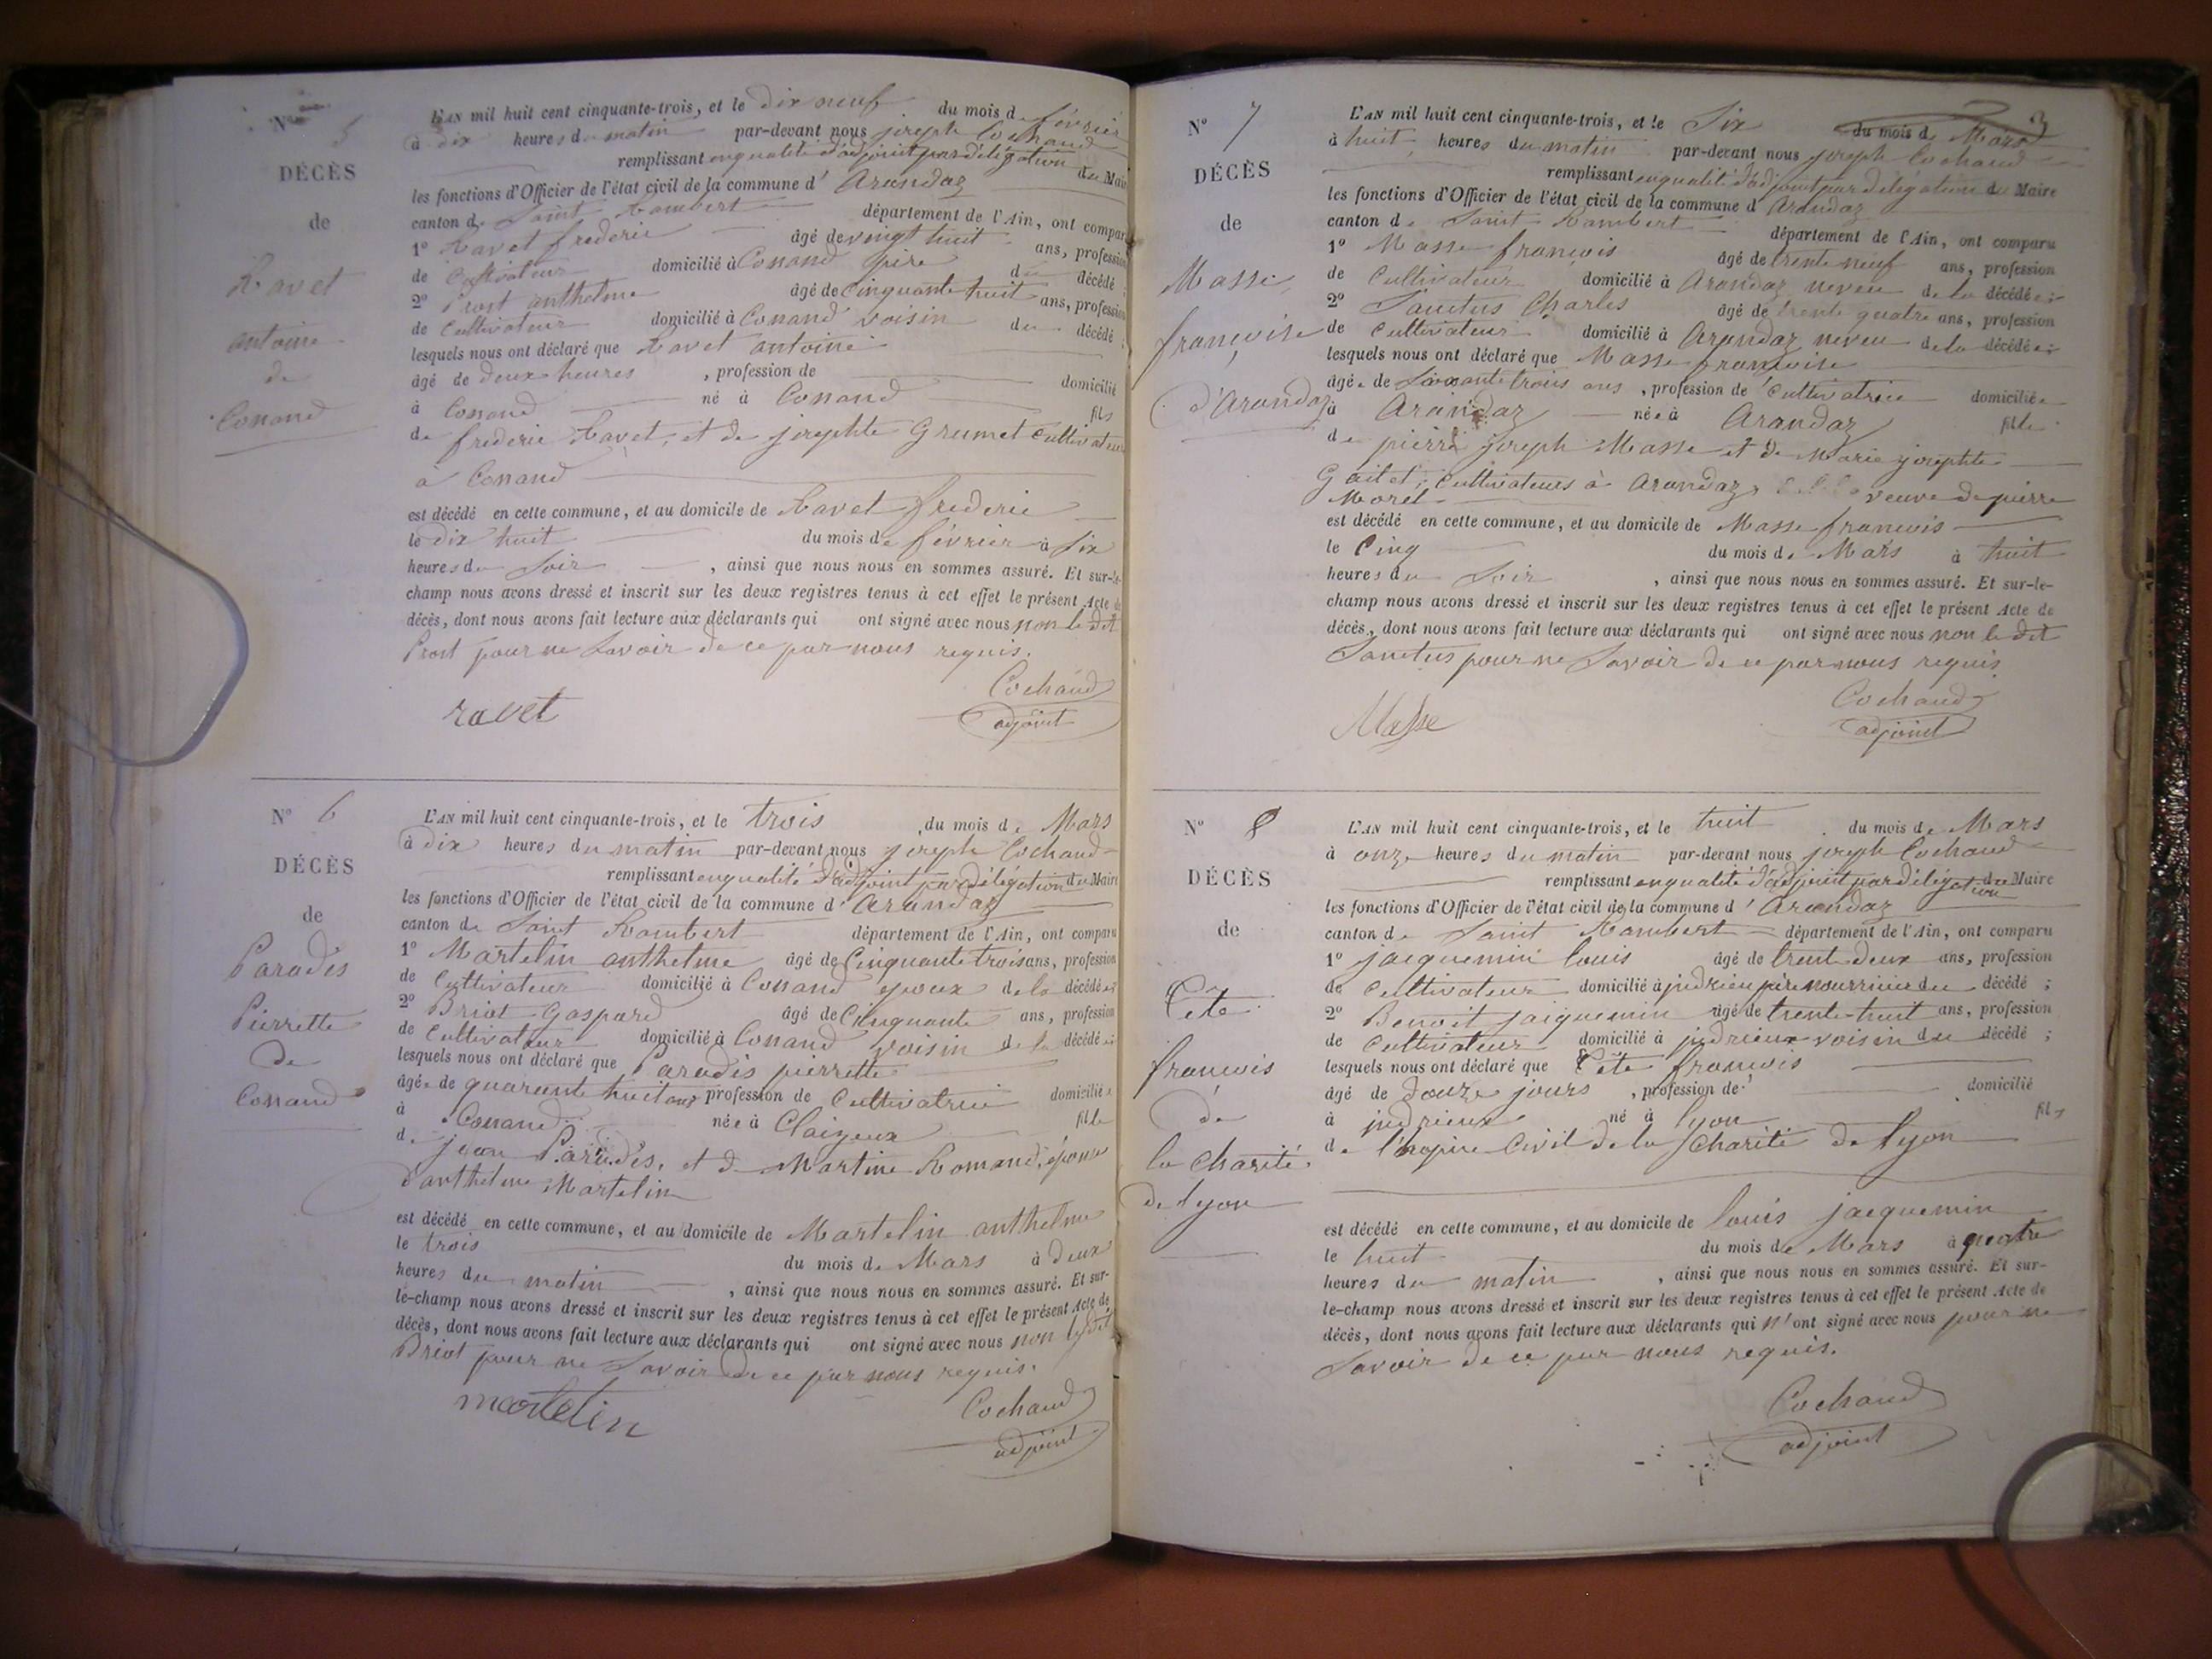 N° 5
DÉCÈS
de
Ravet
antoine
de
Conand
L'AN mil huit cent cinquante-trois, et le dix neuf du mois de février
à dix heures du matin par-devant nous joseph Cochand
remplissant en qualité d'adjoint par délégation du Mai
les fonctions d'Officier de l'état civil de la commune d' Arandaz
canton de Saint Rambert département de l'Ain, ont compar
1° Ravet frederic âgé de vingt huit ans, profession
de Cultivateur domicilié à Conand père du décédé ;
2° Prost anthelme âgé de Cinquante huit ans, profession
de Cultivateur domicilié à Conand voisin du décédé ;
lesquels nous ont déclaré que Ravet antoine
âgé de deux heures , profession de domicilié
à Conand né à Conand fils
de frederic Ravet, et de josephte Grumet Cultivateurs
à Conand
est décédé en cette commune, et au domicile de Ravet frederic
le dix huit du mois de février à six
heures du Soir , ainsi que nous nous en sommes assuré. Et sur-le-
champ nous avons dressé et inscrit sur les deux registres tenus à cet effet le présent Acte de
décès, dont nous avons fait lecture aux déclarants qui ont signé avec nous non le dit
Prost pour ne Savoir de ce par nous requis.
ravet
Cochand
adjoint
N° 6
DÉCÈS
de
Paradis
Pierrette
de
Conand
L'AN mil huit cent cinquante-trois, et le trois du mois de Mars
à dix heures du matin par-devant nous joseph Cochand
remplissant en qualité d'adjoint par délégation du Maire
les fonctions d'Officier de l'état civil de la commune d' Arandaz
canton de Saint Rambert département de l'Ain, ont comparu
1° Martelin anthelme âgé de Cinquante trois ans, profession
de Cultivateur domicilié à Conand epoux de la décédée ;
2° Briot Gaspard âgé de Cinquante ans, profession
de Cultivateur domicilié à Conand voisin de la décédée ;
lesquels nous ont déclaré que Paradis pierrette
âgée de quarante huit ans profession de Cultivatrice domiciliée
à Conand née à Claizeux fille
de jean Paradis, et de Martine Romand, épouse
d'anthelme Martelin
est décédé en cette commune, et au domicile de Martelin anthelme
le trois du mois de Mars à deux
heures du matin , ainsi que nous nous en sommes assuré. Et sur-
le-champ nous avons dressé et inscrit sur les deux registres tenus à cet effet le présent Acte de
décès, dont nous avons fait lecture aux déclarants qui ont signé avec nous non ledit
Briot pour ne Savoir de ce par nous requis.
martelin
Cochand
adjoint
3
N° 7
DÉCÈS
de
Masse
françoise
d'Arandaz
L'AN mil huit cent cinquante-trois, et le Six du mois de Mars
à huit heures du matin par-devant nous joseph Cochand
remplissant en qualité d'adjoint par délégation du Maire
les fonctions d'Officier de l'état civil de la commune d' Arandaz
canton de Saint Rambert département de l'Ain, ont comparu
1° Masse françois âgé de trente neuf ans, profession
de Cultivateur domicilié à Arandaz neveu de la décédée ;
2° Sanctus Charles âgé de trente quatre ans, profession
de Cultivateur domicilié à Arandaz neveu de la décédée ;
lesquels nous ont déclaré que Masse françoise
âgée de Soixante trois ans , profession de Cultivatrice domiciliée
à Arandaz née à Arandaz fille
de pierre joseph Masse et de Marie josephte
Gaitet, Cultivateurs à Arandaz, veuve de pierre
Morel
est décédé en cette commune, et au domicile de Masse francois
le Cinq du mois de Mars à huit
heures du Soir , ainsi que nous nous en sommes assuré. Et sur-le-
champ nous avons dressé et inscrit sur les deux registres tenus à cet effet le présent Acte de
décès, dont nous avons fait lecture aux déclarants qui ont signé avec nous non le dit
Sanctus pour ne Savoir de ce par nous requis.
Masse
Cochand
adjoint
N° 8
DÉCÈS
de
Tête
francois
de
la Charité
de lyon
L'AN mil huit cent cinquante-trois, et le huit du mois de Mars
à onze heures du matin par-devant nous joseph Cochand
remplissant en qualité d'adjoint par délégation du Maire
les fonctions d'Officier de l'état civil de la commune d' Arandaz
canton de Saint Rambert département de l'Ain, ont comparu
1° jacquemin louis âgé de trente deux ans, profession
de Cultivateur domicilié à judrieu père nourricier du décédé ;
2° Benoit jacquemin âgé de trente-huit ans, profession
de Cultivateur domicilié à judrieux voisin du décédé ;
lesquels nous ont déclaré que Tête francois
âgé de Douze jours , profession de domicilié
à judrieux né à lyon fils
de l'hospice Civil de la Charité de lyon
est décédé en cette commune, et au domicile de louis jacquemin
le huit du mois de Mars à quatre
heures du matin , ainsi que nous nous en sommes assuré. Et sur-
le-champ nous avons dressé et inscrit sur les deux registres tenus à cet effet le présent Acte de
décès, dont nous avons fait lecture aux déclarants qui n'ont signé avec nous pour ne
Savoir de ce par nous requis.
Cochand
adjoint